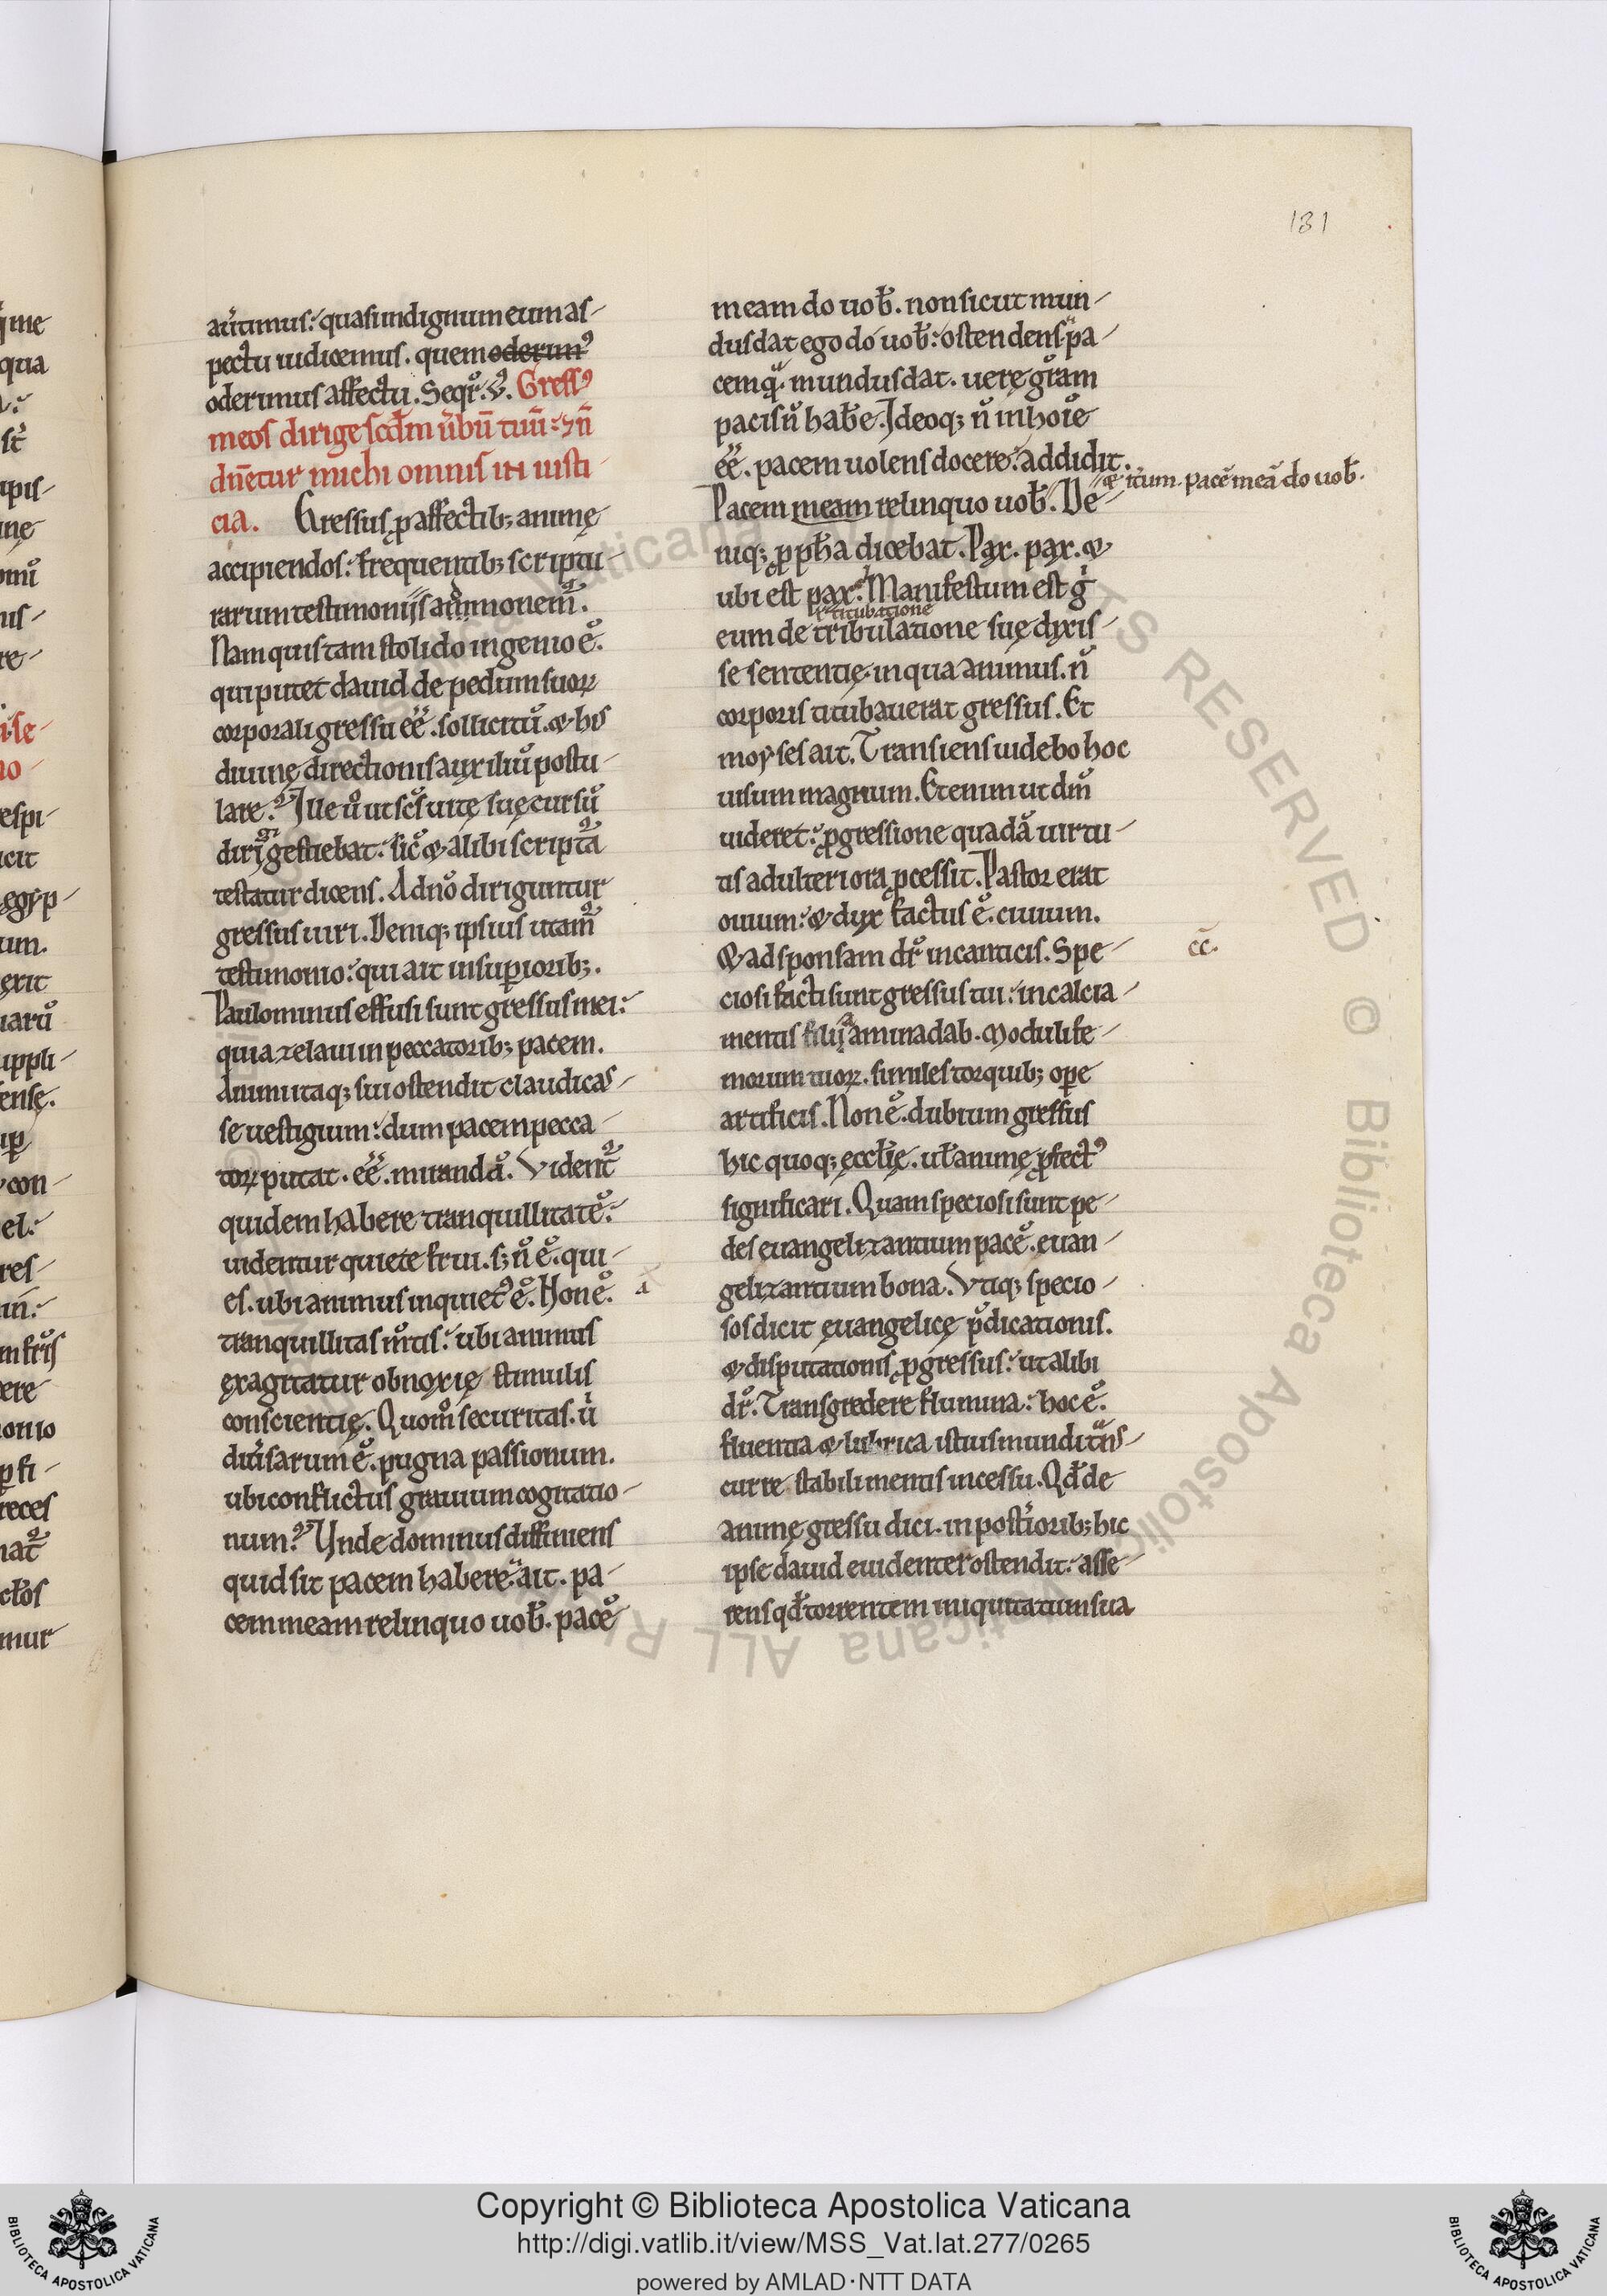 131
au͛timus: quasi indignum eum as-
pectu iudicemus. quem oderim⁹
oderimus affectu. Seqr̃. v̾. Gress⁹
meos dirige scd̃m u͛bũ tuũ: ⁊ ñ
dñetur michi omnis in iusti-
cia. Gressus ꝓ affectib; animę
accipiendos: frequentib; scriptu-
rarum testimoniis am̃monem̃.
Nam quis tam stolido ingenio ẽ.
qui putet dauid de pedum suoꝝ
corporali gressu eẽ. sollicitũ. & his
diuinę directionis auxiliũ postu-
lare? Ille ũ ut sc̃s uitę suę cursũ
dirigi gestiebat: sic̃ & alibi scriptã
testatur dicens. A dn̄o diriguntur
gressus uiri. Deniq; ipsius utam̃
testimonio: qui ait in supioribꝫ.
Paulominus effusi sunt gressus mei:
quia zelaui in peccatorib; pacem.
Animi itaq; sui ostendit claudicas-
se uestigium: dum pacem pecca-
toꝝ putat. eẽ. mirandã. Vident̃
quidem habere tranquillitatẽ:
uidentur quiete frui. sꝫ ñ ẽ. qui-
es. ubi animus inquiet⁹ ẽ. Non ẽ.
tranquillitas m̃tis: ubi animus
exagitatur obnoxię stimulis
conscientię. Quom̃ securitas. u͛
diu͛sarum ẽ. pugna passionum.
ubi conflictus grauium cogitatio-
num? Unde dominus diffiniens
quid sit pacem habere: ait. pa-
cem meam relinquo uob̃. pacẽ
a
meam do uob̃. non sicut mun-
dus dat ego do uob̃: ostendens pa-
cem q̃. mundus dat. uerę grãm
pacis ñ hab̃e. Ideoq; ñ in hoĩe
eẽ. pacem uolens docere: addidit.
Pacem meam relinquo uob̃. De-
& itcum. pacẽ meã do uob̃.
niq; ꝓph̃a dicebat. Pax. pax. &
ubi est pax? Manifestum est g̃
titubatione
eum de tribulatione suę dixis-
se sententię. in qua animus. ñ
corporis titubauerat gressus. Et
moyses ait. Transiens uidebo hoc
uisum magnum. Etenim ut dm̃
uideret: ꝓgressione quadã uirtu-
tis ad ulteriora ꝓcessit. Pastor erat
ouium: & dux factus ẽ. ciuium.
& ad sponsam dr̃ in canticis. Spe-
cc.
ciosi facti sunt gressus tui: in calcia-
mentis filia aminadab. Moduli fe-
morum tuoꝝ. similes torquib; ope
artificis. Non ẽ. dubium gressus
hic quoq; ęccl̃ię. ut̃ animę ꝓfect⁹
significari. Quam speciosi sunt pe-
des euangelizantium pacẽ. euan-
gelizantium bona. Vtiq; specio-
sos dicit ęuangelicę p̃dicationis.
& disputationis ꝓgressus: ut alibi
dr̃. Transgredere flumina: hoc ẽ.
fluenta & lubrica istius mundi tñs-
curre stabili mentis incessu. Qd̃ de
animę gressu dici. in posteriorib; hic
ipse dauid euidenter ostendit: asse-
rens qd̃ torrentem iniquitatium sua
Copyright © Biblioteca Apostolica Vaticana
http://digi.vatlib.it/view/MSS_Vat.lat.277/0265
powered by AMLAD·NTT DATA